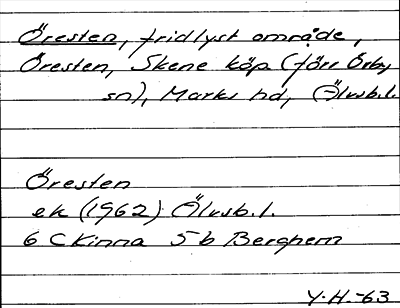 Öresten, fridlyst område,
Öresten, Skene köp (förr Örby
sn), Marks hd, Älvsb.l.
Öresten
ek (1962) Älvsb.l.
6 C Kinna 5 b Berghem
Y.H.-63